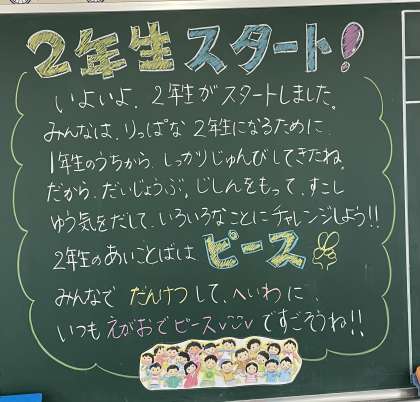 2年生スタート!
いよいよ、2年生がスタートしました。
みんなは、りっぱな2年生になるために、
1年生のうちから、しっかりじゅんびしてきたね。
だから、だいじょうぶ。じしんをもって、すこし
ゆう気をだして、いろいろなことにチャレンジしよう!!
2年生のあいことばは ピース
みんなで だんけつして、へいわに、
いつも えがおで ピース ですごそうね!!